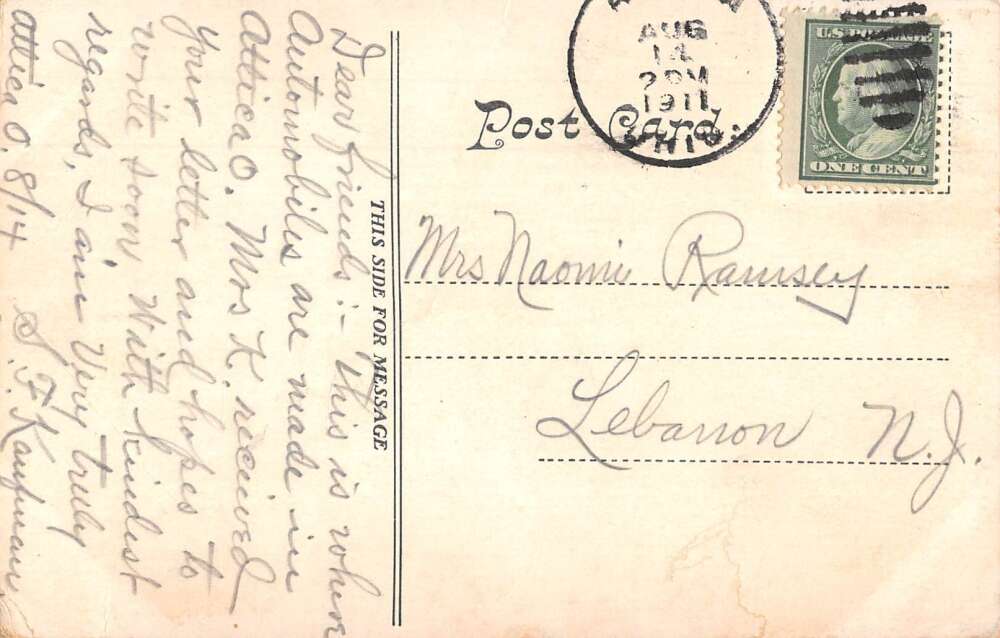 Dear friends:- This is where
Automobiles are made in
Attica O. Mrs K. received
your letter and hopes to
write soon. With kindest
regards, I am Very truly
S. F. Kaufman
Attica O. 8/14
THIS SIDE FOR MESSAGE
Post Card.
AUG
14
2 PM
1911
OHIO
U.S. POSTAGE
ONE CENT
Mrs Naomi Ramsey
Lebanon N.J.